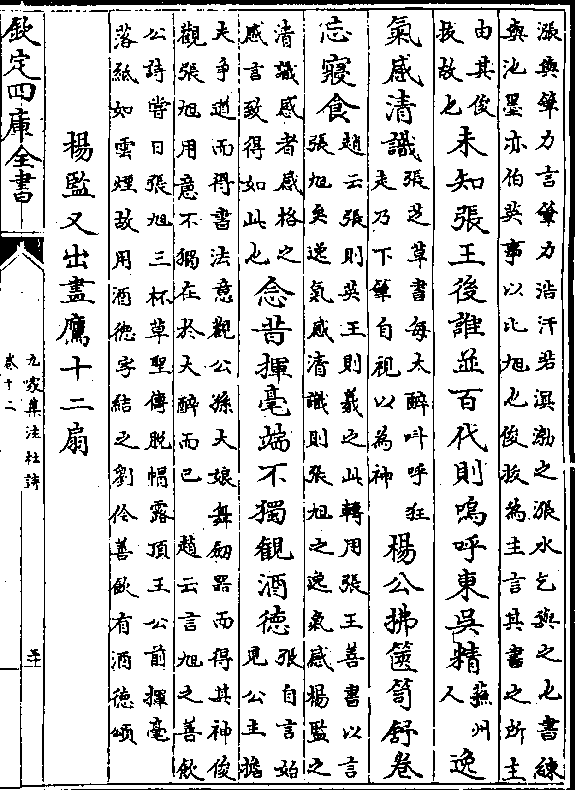 漲與筆力言筆力浩汗若溟渤之漲水乞與之也書練
與池墨亦伯英事以比旭也俊拔為主言其書之所主
由其俊
拔故也
未知張王後誰並百代則嗚呼東吳精
蘇州
人
逸
氣感清識
張芝草書每大醉呌呼狂
走乃下筆自視以為神
楊公拂篋笥舒卷
忘寢食
趙云張則吳王則羲之此轉用張王善書以言
張旭矣逸氣感清識則張旭之逸氣感楊監之
清識感者感格之
感言致得如此也
念昔揮毫端不獨觀酒德
張自言始
見公主擔
夫爭道而得書法意觀公孫大娘舞劒器而得其神俊
觀張旭用意不獨在於大醉而已 趙云言旭之善飲
公詩嘗曰張旭三杯草聖傳脫帽露頂王公前揮毫
落紙如雲煙故用酒德字結之劉伶善飲有酒德頌
楊監又出畫鷹十二扇
欽定四庫全書
九家集注杜詩
卷十二